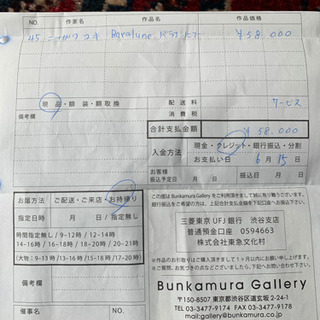 NO. 作家名 作品名 作品価格
45. ¥58,000
現品・額装・額取換
備考欄
配送料 サービス
消費税
合計支払金額 ¥58,000
入金方法 現金・クレジット・銀行振込・分割
お支払い日 6月15日
お客様
振込予定日 月 日
お届方法 ご配送・ご来店・お持帰り
指定日時 月 日/指定無し
時間指定無し/9-12時/12-14時
14-16時/16-18時/18-20時/20-21時
(大物:9-13時/13-16時/15-18時/18-21時)
備考欄
催事名
この度は Bunkamura Gallery をご利用頂きまして誠に有り難うございます。
三菱東京UFJ銀行 渋谷支店
普通預金口座 0594663
株式会社東急文化村
Bunkamura Gallery
〒150-8507 東京都渋谷区道玄坂2-24-1
TEL 03-3477-9174 FAX 03-3477-9178
mail:gallery@bunkamura.co.jp